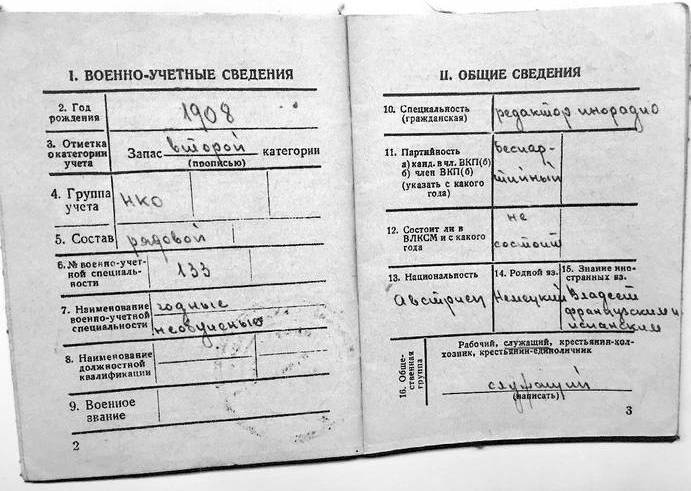 I. ВОЕННО-УЧЕТНЫЕ СВЕДЕНИЯ
2. Год
рождения
1908
3. Отметка
о категории
учета
Запас второй категории
(прописью)
4. Группа
учета
НКО
5. Состав
рядовой
6. № военно-учет-
ной специаль-
ности
133
7. Наименование
военно-учетной
специальности
годные
необученые
8. Наименование
должностной
квалификации
9. Военное
звание
2
II. ОБЩИЕ СВЕДЕНИЯ
10. Специальность
(гражданская)
редактор инорадио
11. Партийность
а) канд. в чл. ВКП(б)
б) член ВКП(б)
(указать с какого
года)
беспар-
тийный
12. Состоит ли в
ВЛКСМ и с какого
года
не
состоит
13. Национальность
Австриец
14. Родной яз.
Немецкий
15. Знание ино-
странных яз.
Владеет
французским и
испанским
16. Общес-
твенная
группа
Рабочий, служащий, крестьянин-кол-
хозник, крестьянин-единоличник
служащий
(написать)
3